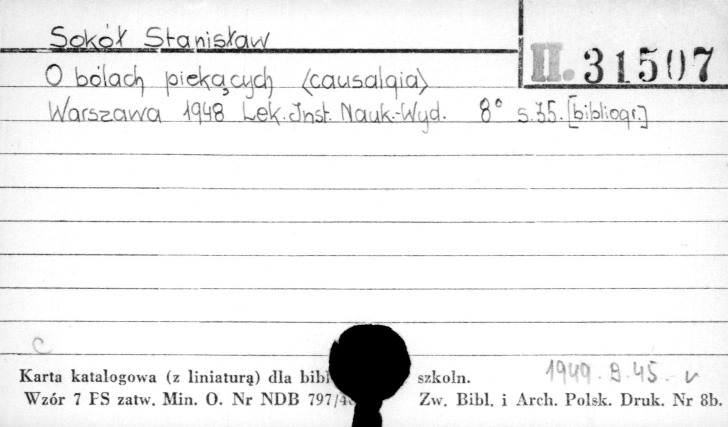 Sokół Stanisław
II. 31507
O bólach piekących <causalgia>
Warszawa 1948 Lek. Inst. Nauk.-Wyd. 8° s. 35. [bibliogr.]
C
1949. D. 45.
Karta katalogowa (z liniaturą) dla bibl szkoln.
Wzór 7 FS zatw. Min. O. Nr NDB 797/4 Zw. Bibl. i Arch. Polsk. Druk. Nr 8b.